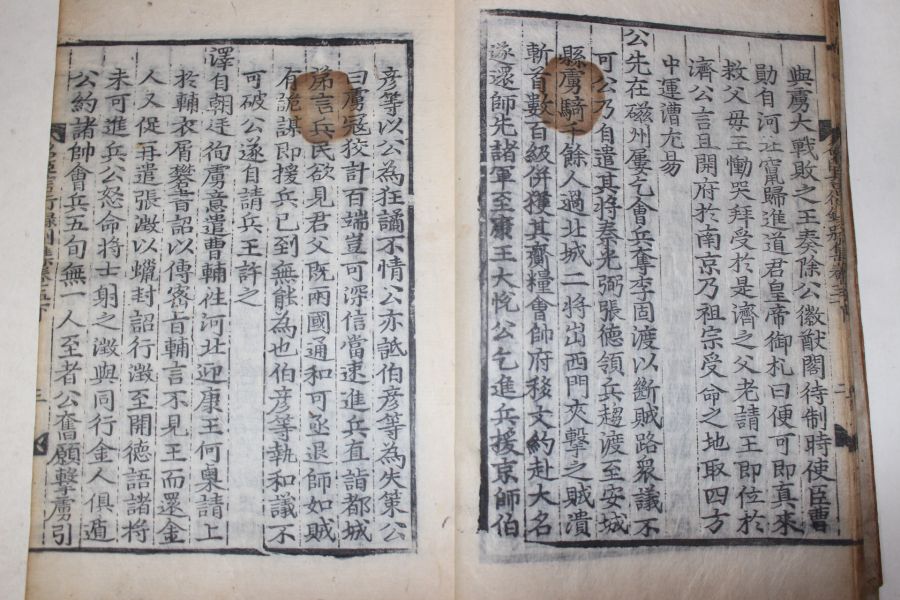 與虜大戰敗之王奏除公徽猷閣待制時使臣曹
勛自河北竄歸進道君皇帝御札曰便可即真來
救父毋王慟哭拜受於是濟之父老請王即位於
濟公言且開府於南京乃祖宗受命之地取四方
中運漕尢易
公先在磁州屢乞會兵奪李固渡以斷賊路衆議不
可公乃自遣其將秦光弼張德領兵趨渡至安城
縣虜騎千餘人過北城二將出西門夾擊之賊潰
斬首數百級併獲其齎糧會師府移文約赴大名
遂還師先諸軍至康王大恱公乞進兵援京師伯
彦等以公為狂譎不情公亦詆伯彦等為失策公
曰虜冦狡計百端豈可深信當速進兵直詣都城
苐言兵民欲見君父旣兩國通和可亟退師如賊
有詭謀即援兵已到無能為也伯彦等執和議不
可破公遂自請兵王許之
澤自朝廷徇虜意遣曹輔徃河北迎康王何㮚請上
於輔衣屑礬書詔以傳宻旨輔言不見王而還金
人又促再遣張澂以蠟封詔行澂至開德語諸將
未可進兵公怒命將士射之澂與同行金人俱遁
公約諸帥會兵五旬無一人至者公奮願擊虜引